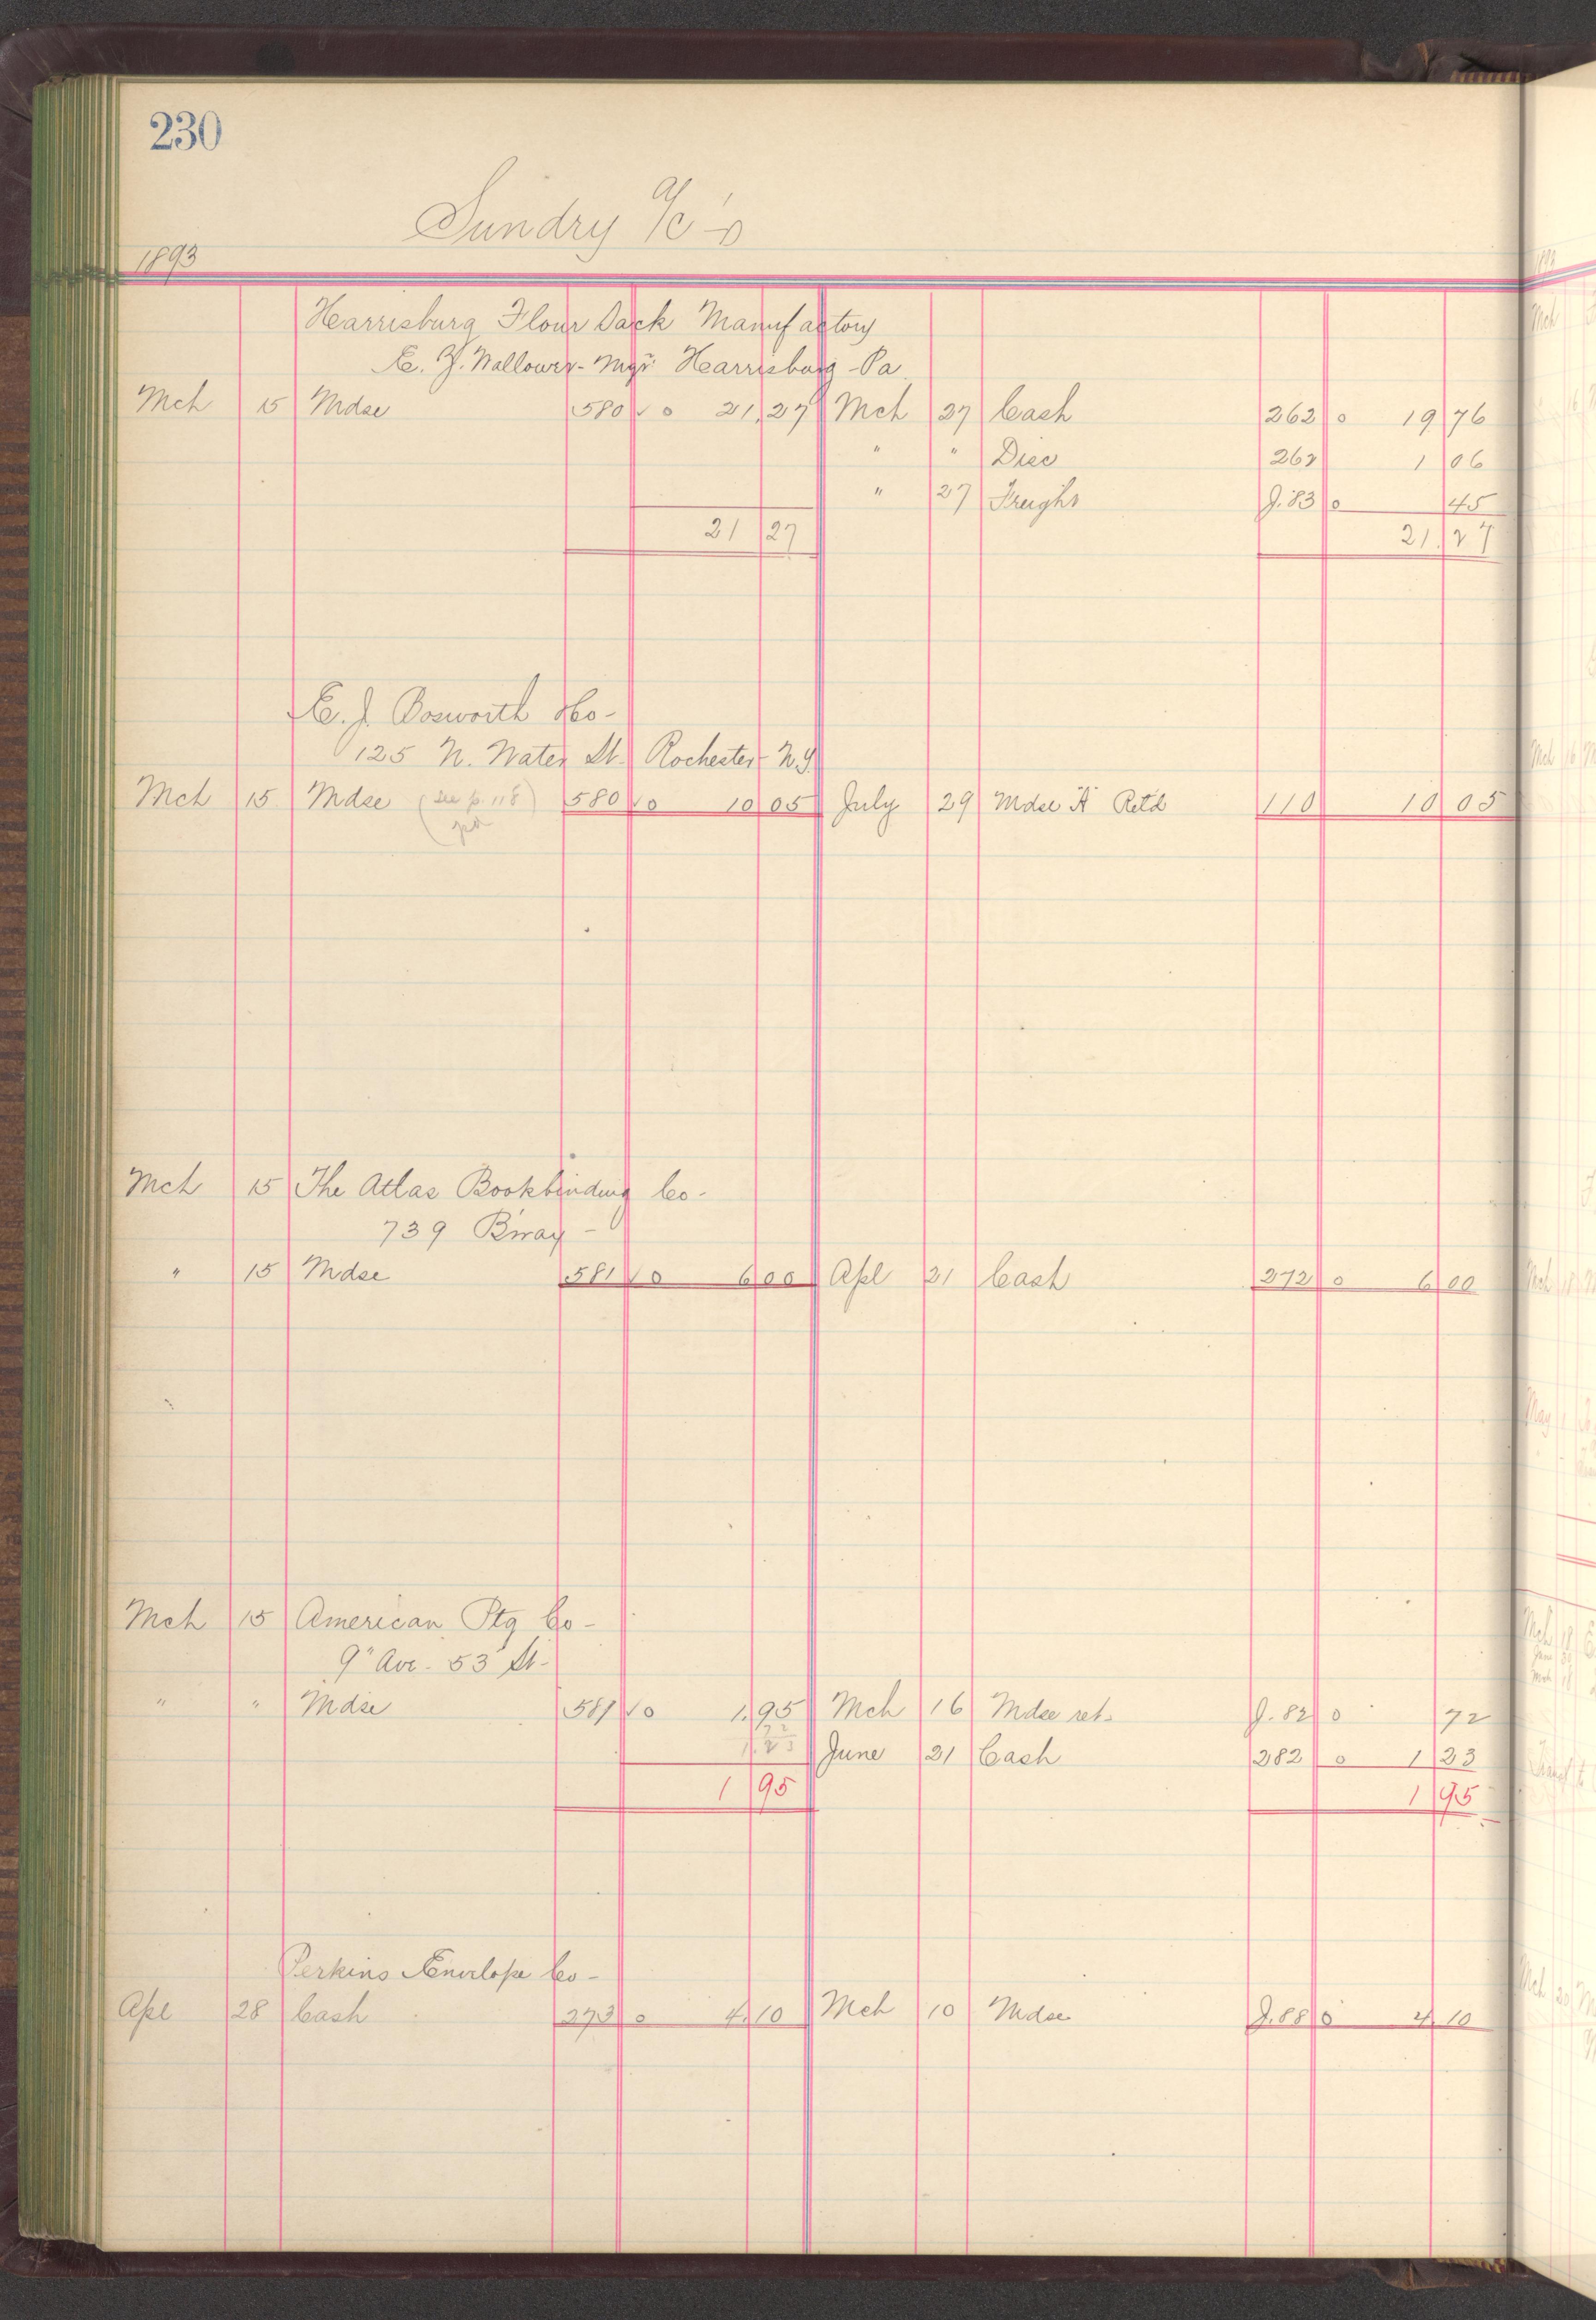 230
Sundry a/c's
1893
Harrisburg Flour Sack Manufactory
E. Z. Wallower - Mgr Harrisburg - Pa
Mch 15 Mdse 580 √ o 21.27 Mch 27 Cash 262 o 19 76
" " Disc 262 1 06
" 27 Freight J. 83 o 45
21 27 21.27
E. J. Bosworth & Co-
125 N. Water St. Rochester N.Y.
Mch 15 Mdse (see p. 118) 580 √ o 10 05 July 29 Mdse A Retd 110 10 05
Mch 15 The Atlas Bookbinding Co-
739 Bway -
" 15 Mdse 581 √ o 6 00 Apl 21 Cash 272 o 6 00
Mch 15 American Ptg Co-
9" Ave. 53 St-
" " Mdse 581 √ o 1.95 Mch 16 Mdse ret. J. 82 o 72
1.23 June 21 Cash 282 o 1 23
1 95 1 95
Perkins Envelope Co-
Apl 28 Cash 273 o 4.10 Mch 10 Mdse J. 88 o 4 10